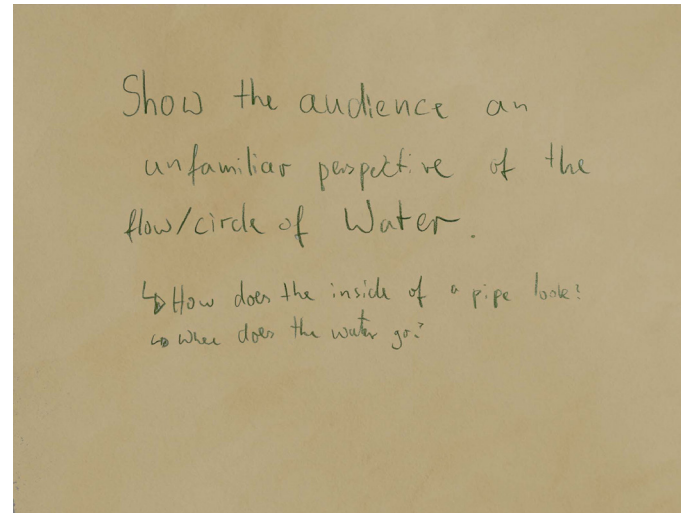 Show the audience an
unfamiliar perspective of the
flow/circle of Water.
↳ How does the inside of a pipe look?
↳ Where does the water go?